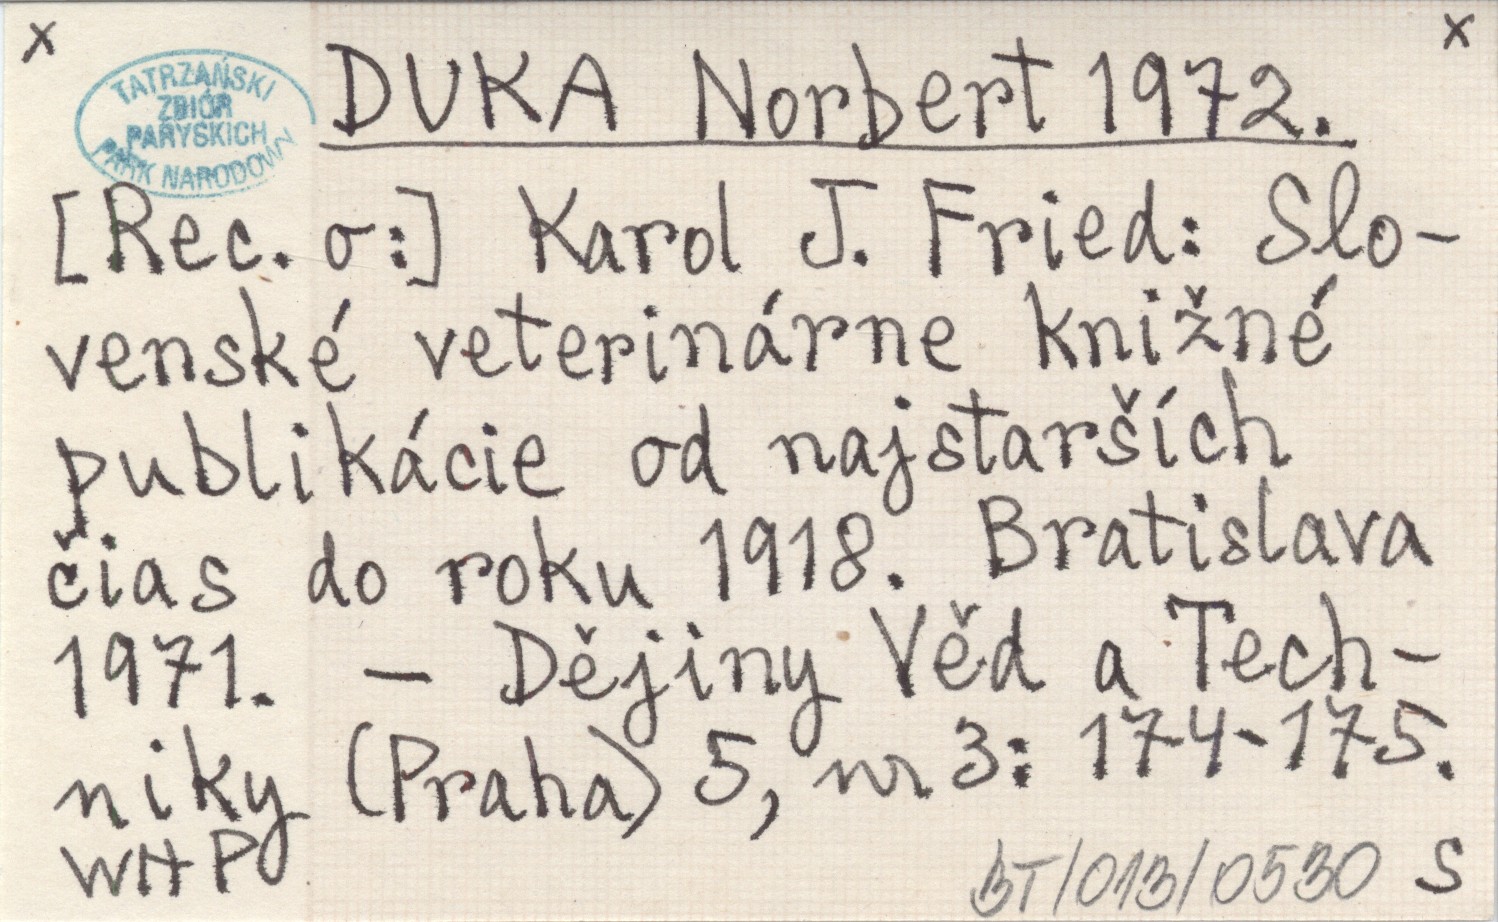 x x
TATRZAŃSKI
ZBIÓR
PARYSKICH
PARK NARODOWY
DUKA Norbert 1972.
[Rec. o:] Karol J. Fried: Slo-
venské veterinárne knižné
publikácie od najstarších
čias do roku 1918. Bratislava
1971. — Dějiny Věd a Tech-
niky (Praha) 5, nr 3: 174-175.
WHP
BT/013/0530 S